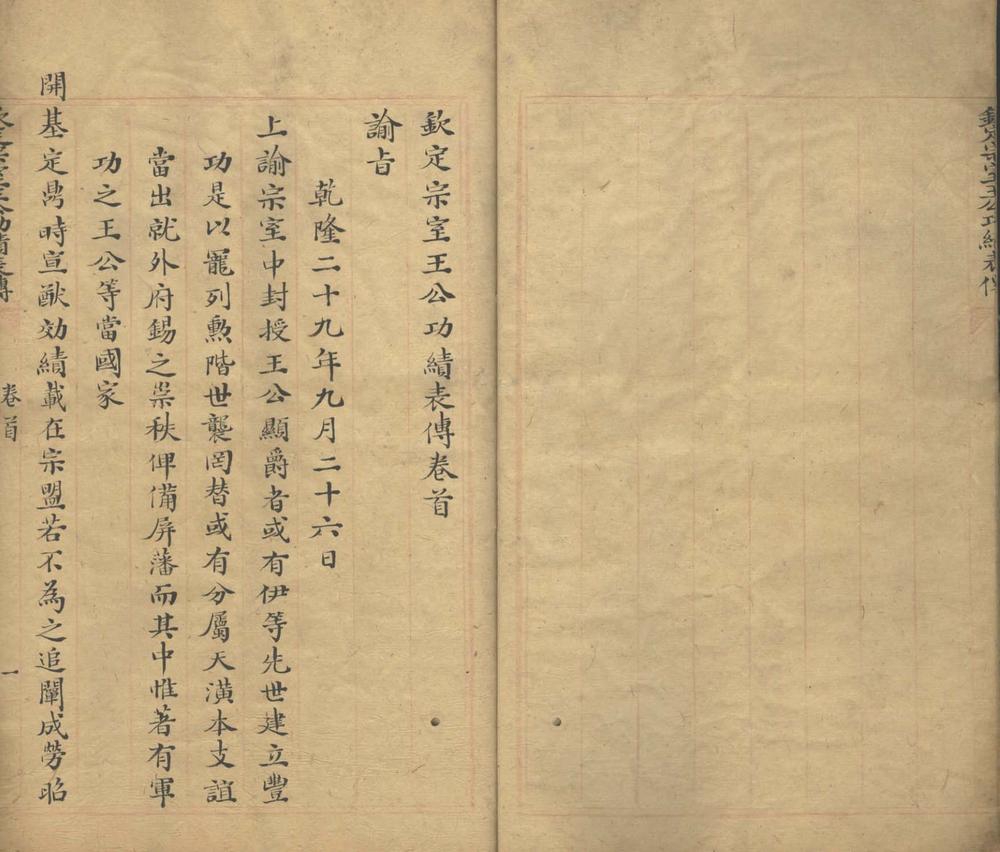 欽定宗室王公功績表傳
欽定宗室王公功績表傳卷首
諭旨
乾隆二十九年九月二十六日
上諭宗室中封授王公顯爵者或有伊等先世建立豐
功是以寵列勲階世襲罔替或有分屬天潢本支誼
當出就外府錫之崇秩俾備屏藩而其中惟著有軍
功之王公等當國家
開基定鼎時宣猷効績載在宗盟若不為之追闡成勞昭
欽定宗室王公功績表傳 卷首 一